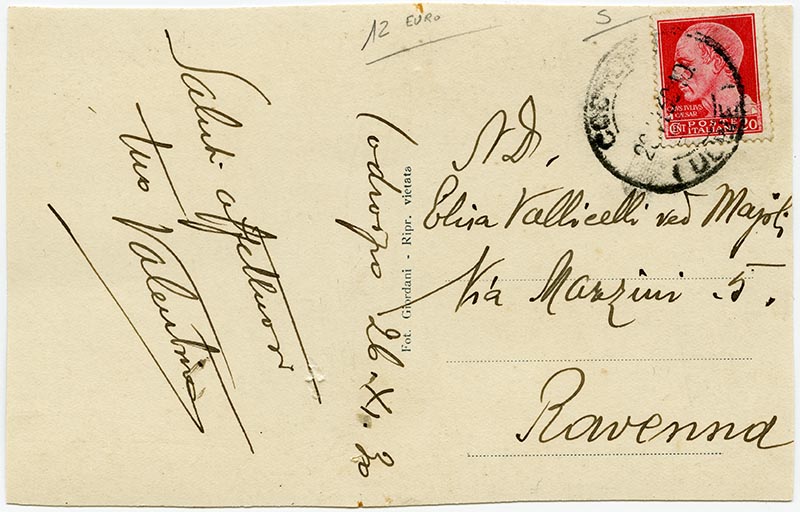 12 EURO
5
Saluti affettuosi
tuo Valentino
Codroipo 26.XI.30
Fot. Giordani - Ripr. vietata
N.D.
Elisa Vallicelli ved Majoli
Via Mazzini 5.
Ravenna
CAESAR
CENT POSTE ITALIANE 20
(UDINE)